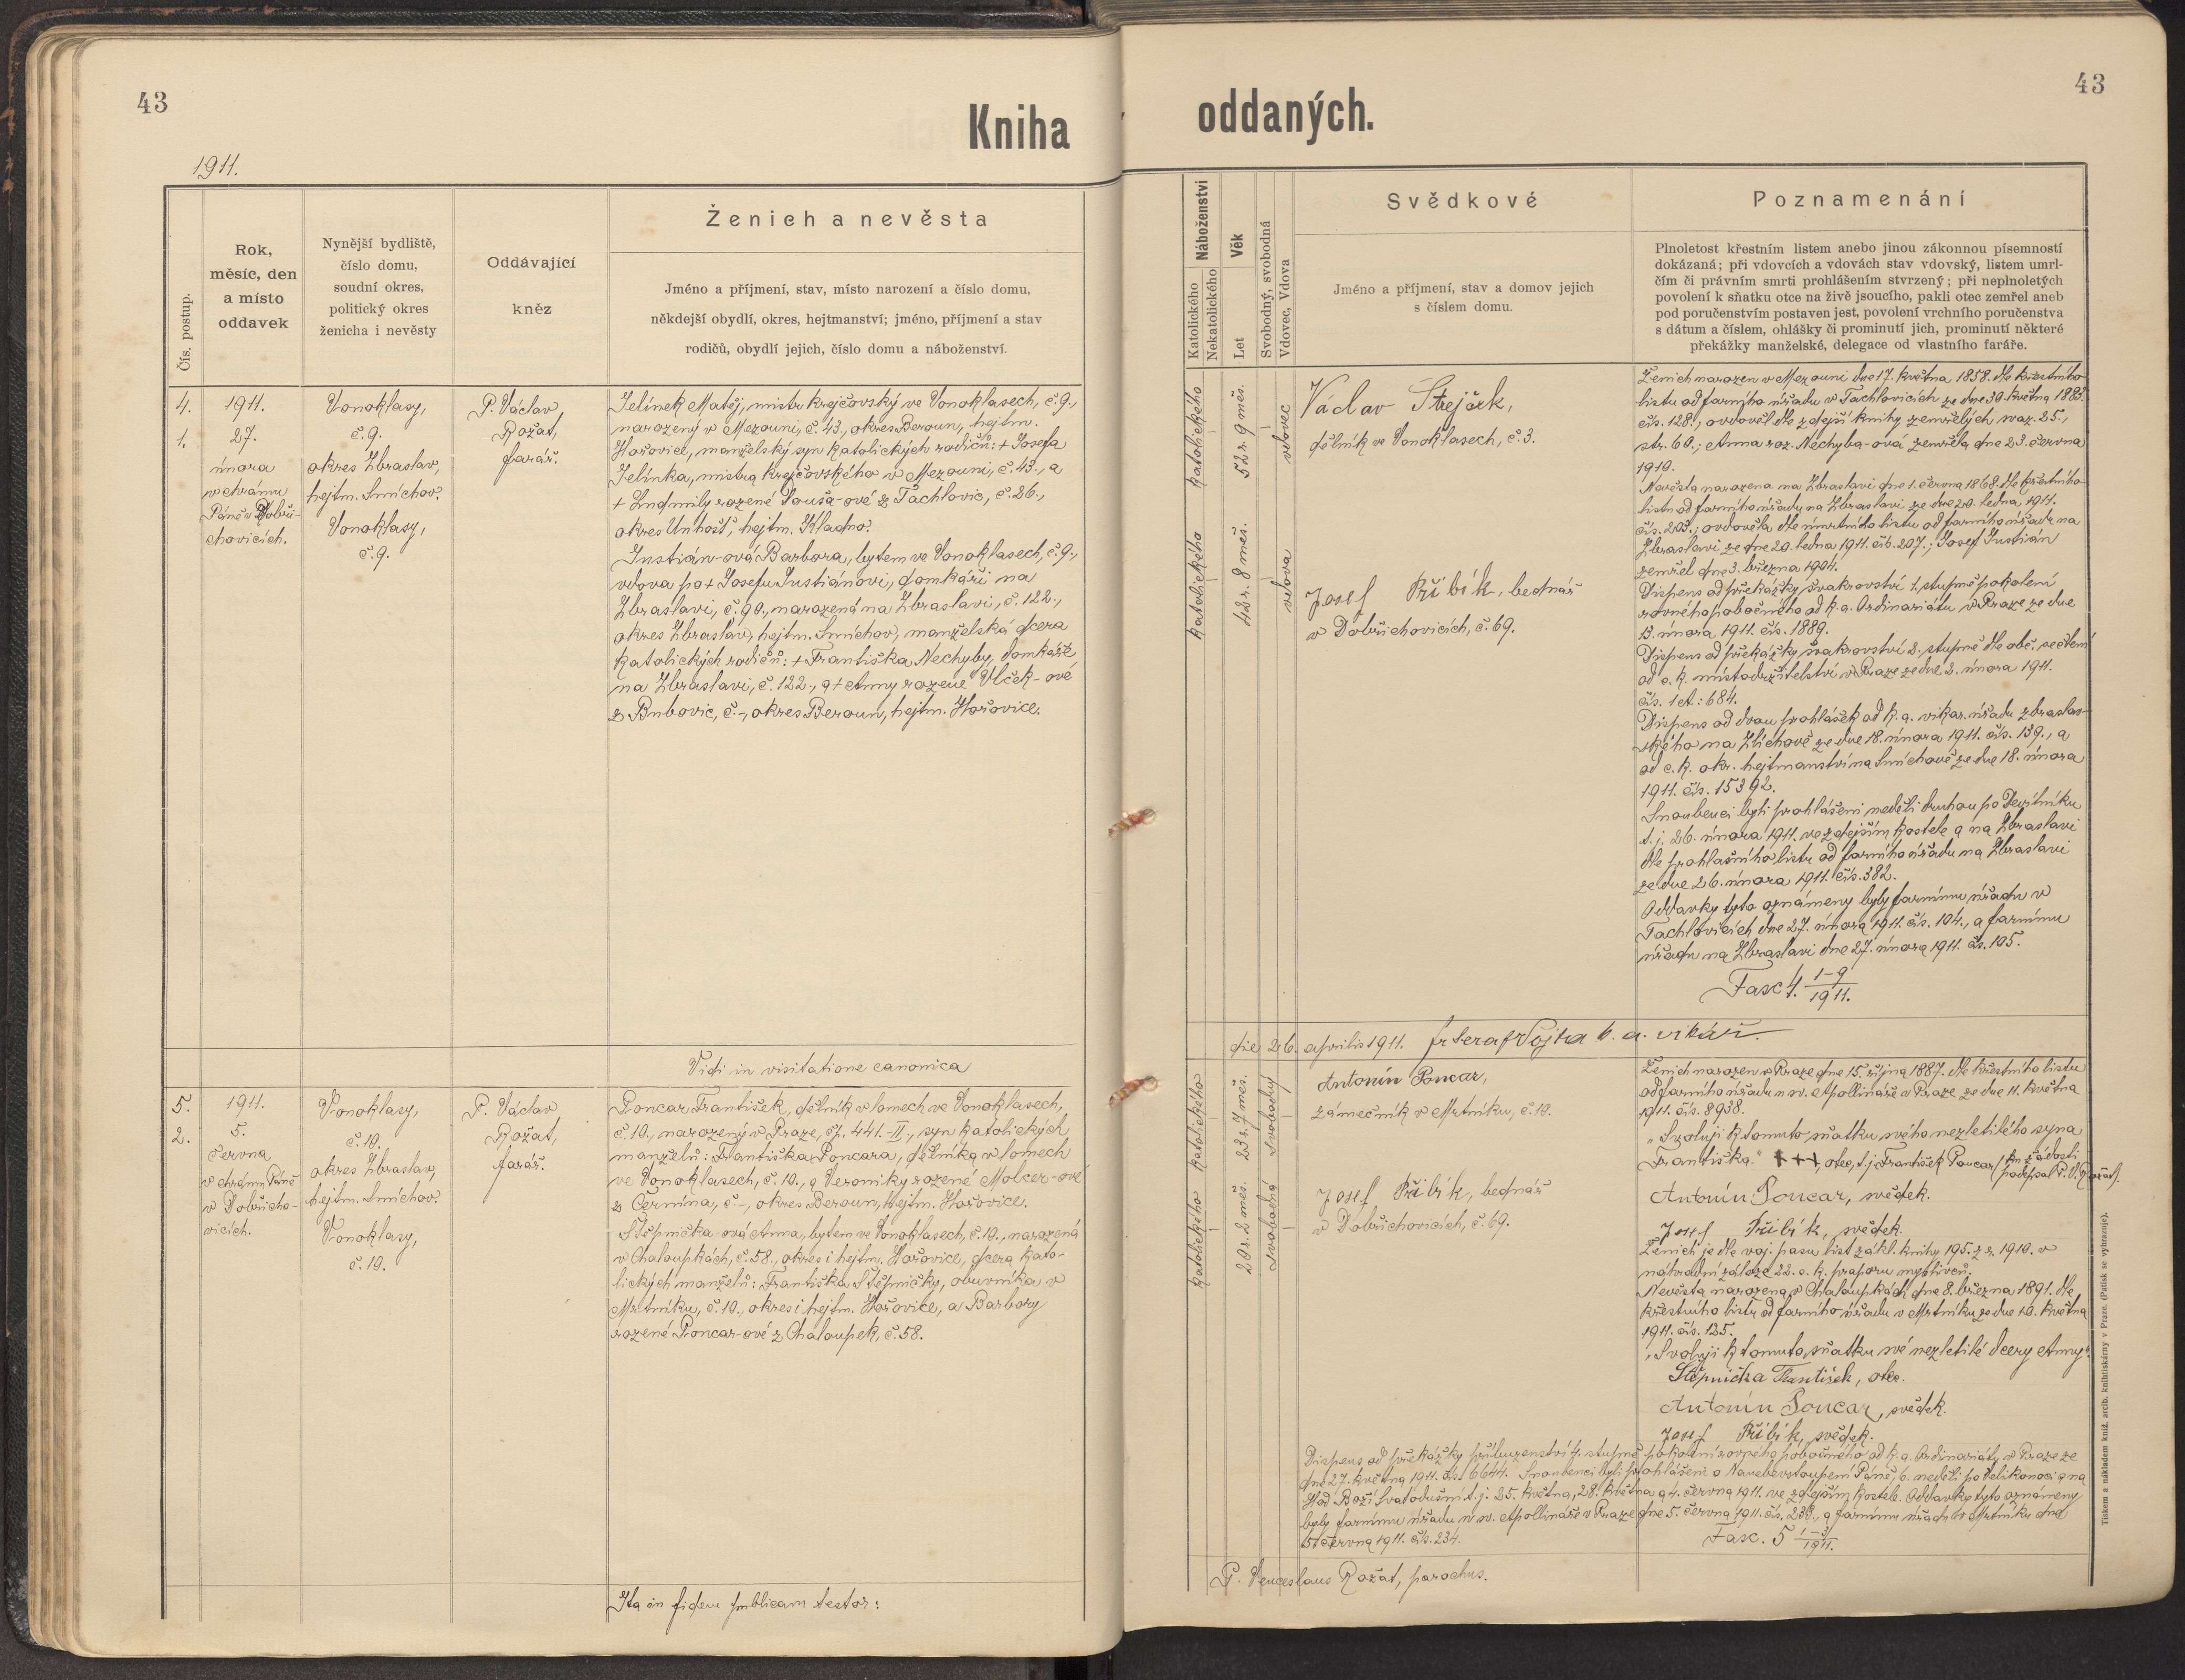 43
Kniha
1911.
Čís. postup.
Rok,
měsíc, den
a místo
oddavek
Nynější bydliště,
číslo domu,
soudní okres,
politický okres
ženicha i nevěsty
Oddávající
kněz
Ženich a nevěsta
Jméno a příjmení, stav, místo narození a číslo domu,
někdejší obydlí, okres, hejtmanství; jméno, příjmení a stav
rodičů, obydlí jejich, číslo domu a náboženství.
4.
1.
1911.
27.
února
v chrámu
Páně v Dobři-
chovicích.
Vonoklasy,
č. 9.
okres Zbraslav,
hejtm. Smíchov.
Vonoklasy,
č. 9.
P. Václav
Rožat,
farář.
Jelínek Matěj, mistr krejčovský ve Vonoklasech, č. 9.,
narozený v Mezouni, č. 43., okres Beroun, hejtm.
Hořovice, manželský syn katolických rodičů: + Josefa
Jelínka, mistra krejčovského v Mezouni, č. 43., a
+ Ludmily rozené Souša-ové z Tachlovic, č. 26.,
okres Unhošť, hejtm. Kladno.
Justián-ová Barbora, bytem ve Vonoklasech, č. 9.,
vdova po + Josefu Justiánovi, domkáři na
Zbraslavi, č. 90., narozená na Zbraslavi, č. 122.,
okres Zbraslav, hejtm. Smíchov, manželská dcera
katolických rodičů: + Františka Nechyby, domkáře
na Zbraslavi, č. 122., a + Anny rozené Vlček-ové
z Bubovic, č. -, okres Beroun, hejtm. Hořovice.
Vidi in visitatione canonica
5.
2.
1911.
5.
června
v chrámu Páně
v Dobřicho-
vicích.
Vonoklasy,
č. 10.
okres Zbraslav,
hejtm. Smíchov.
Vonoklasy,
č. 10.
P. Václav
Rožat,
farář.
Poncar František, dělník v lomech ve Vonoklasech,
č. 10., narozený v Praze, čp. 441.-II., syn katolických
manželů: Františka Poncara, dělníka v lomech
ve Vonoklasech, č. 10., a Veroniky rozené Molcer-ové
z Černína, č. -, okres Beroun, hejtm. Hořovice.
Štěpnička-ová Anna, bytem ve Vonoklasech, č. 10., narozená
v Chaloupkách, č. 58., okres i hejtm. Hořovice, dcera kato-
lických manželů: Františka Štěpničky, obuvníka v
Mrtníku, č. 10., okres i hejtm. Hořovice, a Barbory
rozené Poncar-ové z Chaloupek, č. 58.
Ita in fidem publicam testor:
43
oddaných.
Náboženství
Katolického
Nekatolického
Věk
Let
Svobodný, svobodná
Vdovec, Vdova
Svědkové
Jméno a příjmení, stav a domov jejich
s číslem domu.
Poznamenání
Plnoletost křestním listem anebo jinou zákonnou písemností
dokázaná; při vdovcích a vdovách stav vdovský, listem umrl-
čím či právním smrti prohlášením stvrzený; při neplnoletých
povolení k sňatku otce na živě jsoucího, pakli otec zemřel aneb
pod poručenstvím postaven jest, povolení vrchního poručenstva
s dátum a číslem, ohlášky či prominutí jich, prominutí některé
překážky manželské, delegace od vlastního faráře.
katolického
52 r. 9 měs.
vdovec
katolického
42 r. 8 měs.
vdova
Václav Strejček,
dělník ve Vonoklasech, č. 3.
Josef Přibík, bednář
v Dobřichovicích, č. 69.
Ženich narozen v Mezouni dne 17. května 1858. dle křestního
listu od farního úřadu v Tachlovicích ze dne 30. května 1883.
čís. 128.; ovdověl dle zdejší knihy zemřelých, svaz. 25.,
str. 60.; Anna roz. Nechyba-ová zemřela dne 23. června
1910.
Nevěsta narozena na Zbraslavi dne 1. června 1868. dle křestního
listu od farního úřadu na Zbraslavi ze dne 20. ledna 1911.
čís. 205.; ovdověla dle úmrtního listu od farního úřadu na
Zbraslavi ze dne 20. ledna 1911. čís. 207.; Josef Justián
zemřel dne 3. března 1904.
Dispens od překážky švakrovství 1. stupně pokolení
rovného pobočného od k. a. Ordinariátu v Praze ze dne
13. února 1911. čís. 1889.
Dispens od překážky švakrovství 2. stupně dle obč. sečtení
od c. k. místodržitelství v Praze ze dne 2. února 1911.
čís. 1 A: 684.
Dispens od dvou prohlášek od k. a. vikar. úřadu zbraslav-
ského na Zlíchově ze dne 18. února 1911. čís. 139., a
od c. k. okr. hejtmanství na Smíchově ze dne 18. února
1911. čís. 15392.
Snoubenci byli prohlášeni neděli druhou po Devítníku
t. j. 26. února 1911. ve zdejším kostele a na Zbraslavi
dle prohlašního listu od farního úřadu na Zbraslavi
ze dne 26. února 1911. čís. 382.
Oddavky tyto oznámeny byly farnímu úřadu v
Tachlovicích dne 27. února 1911. čís. 104., a farnímu
úřadu na Zbraslavi dne 27. února 1911. čís. 105.
Fasc. 4. 1-9/1911.
die 26. aprilis 1911. b. a. vikář.
katolického
23 r. 7 měs.
svobodný
katolického
20 r. 2 měs.
svobodná
Antonín Poncar,
zámečník v Mrtníku, č. 10.
Josef Přibík, bednář
v Dobřichovicích, č. 69.
Ženich narozen v Praze dne 15. října 1887. dle křestního listu
od farního úřadu u sv. Apollináře v Praze ze dne 11. května
1911. čís. 8938.
„Svoluji k tomuto sňatku svého nezletilého syna
Františka." +++, otec, t. j. František Poncar (ku žádosti
podepsal P. V. Rožat).
Antonín Poncar, svědek.
Josef Přibík, svědek.
Ženich je dle voj. pasu list zákl. knihy 195. z r. 1910. v
náhradní záloze 22. c. k. praporu myslivců.
Nevěsta narozena v Chaloupkách dne 8. března 1891. dle
křestního listu od farního úřadu v Mrtníku ze dne 10. května
1911. čís. 125.
„Svoluji k tomuto sňatku své nezletilé dcery Anny".
Štěpnička František, otec.
Antonín Poncar, svědek.
Josef Přibík, svědek.
Dispens od překážky příbuzenství 4. stupně pokolení rovného pobočného od k. a. Ordinariátu v Praze ze
dne 27. května 1911. čís. 6644. Snoubenci byli prohlášeni o Nanebevstoupení Páně, 6. neděli po Velikonoci a na
Hod Boží Svatodušní t. j. 25. května, 28. května a 4. června 1911. ve zdejším kostele. Oddavky tyto oznámeny
byly farnímu úřadu u sv. Apollináře v Praze dne 5. června 1911. čís. 233., a farnímu úřadu v Mrtníku dne
5. června 1911. čís. 234.
Fasc. 5 1-3/1911.
P. Venceslaus Rožat, parochus.
Tiskem a nákladem kníž. arcib. knihtiskárny v Praze. (Patisk se vyhrazuje).